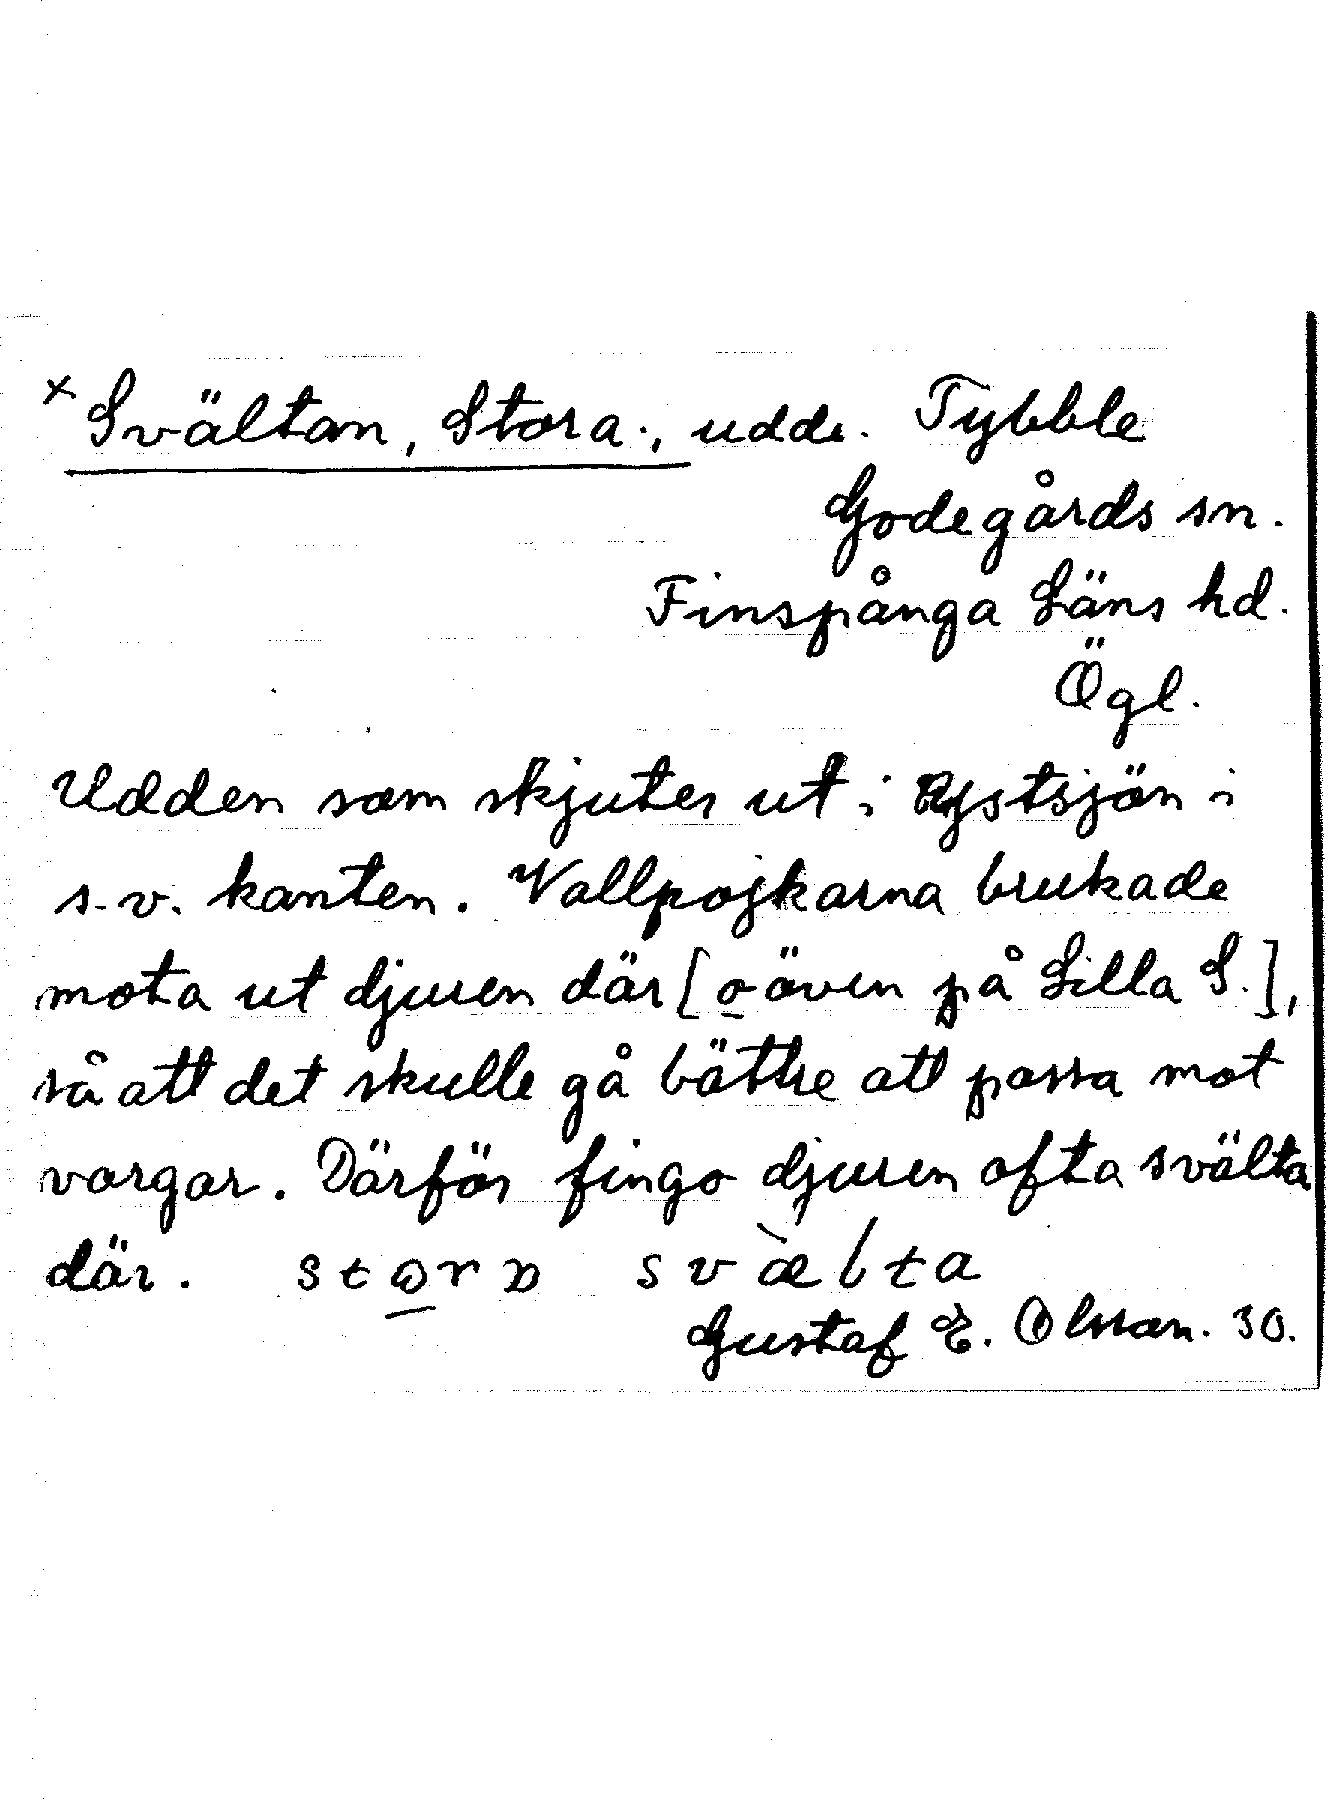 × Svältan, Stora ., udde. Tybble
Godegårds sn.
Finspånga Läns hd.
Ögl.
Udden som skjuter ut i Rystsjön i
s.v. kanten. Vallpojkarna brukade
mota ut djuren där [o även på Lilla S.],
så att det skulle gå bättre att passa mot
vargar. Därför fingo djuren ofta svälta
där.
Gustaf E. Olsson. 30.